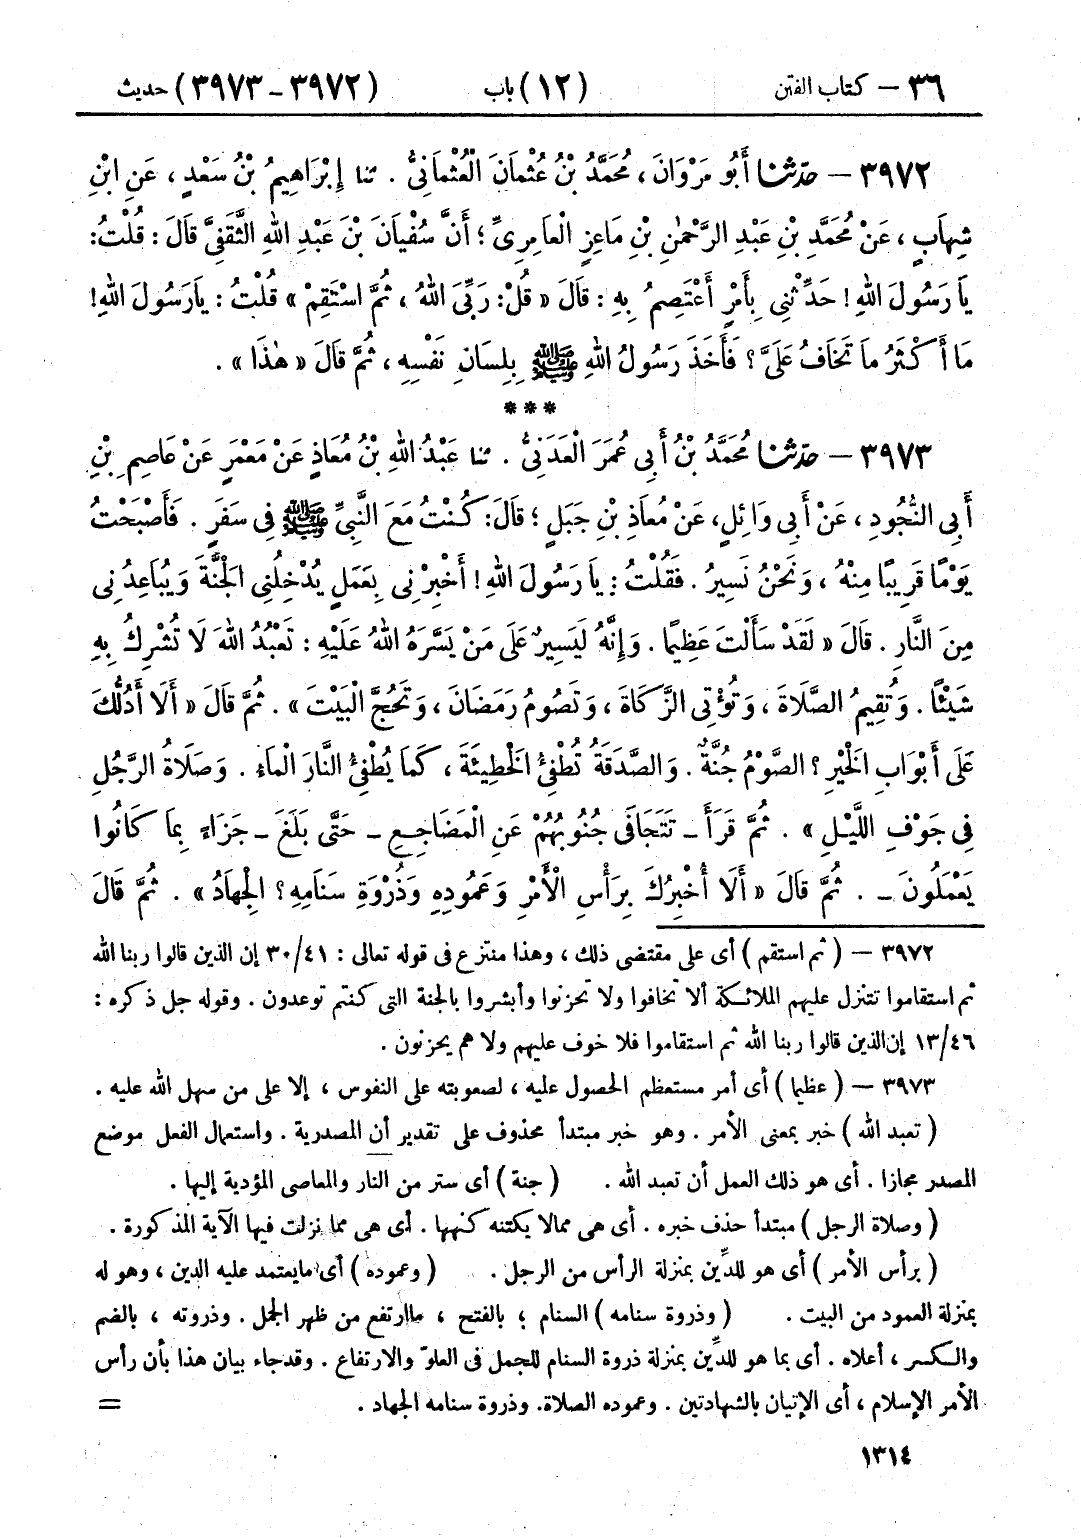 ٣٦ – كتاب الفتن (١٢) باب (٣٩٧٢ – ٣٩٧٣) حديث
٣٩٧٢ – حَدَّثَنَا أَبُو مَرْوَانَ ، مُحَمَّدُ بْنُ عُثْمَانَ الْعُثْمَانِىُّ . ثنا إِبْرَاهِيمُ بْنُ سَعْدٍ ، عَنِ ابْنِ
شِهَابٍ ، عَنْ مُحَمَّدِ بْنِ عَبْدِ الرَّحْمٰنِ بْنِ مَاعِزٍ الْعَامِرِىِّ ؛ أَنَّ سُفْيَانَ بْنَ عَبْدِ اللهِ الثَّقَفِىَّ قَالَ : قُلْتُ :
يَا رَسُولَ اللهِ ! حَدِّثْنِى بِأَمْرٍ أَعْتَصِمُ بِهِ : قَالَ « قُلْ : رَبِّىَ اللهُ ، ثُمَّ اسْتَقِمْ » قُلْتُ : يَارَسُولَ اللهِ !
مَا أَكْثَرُ مَا تَخَافُ عَلَىَّ ؟ فَأَخَذَ رَسُولُ اللهِ ﷺ بِلِسَانِ نَفْسِهِ ، ثُمَّ قَالَ « هٰذَا » .
***
٣٩٧٣ – حَدَّثَنَا مُحَمَّدُ بْنُ أَبِى عُمَرَ الْعَدَنِىُّ . ثنا عَبْدُ اللهِ بْنُ مُعَاذٍ عَنْ مَعْمَرٍ عَنْ عَاصِمِ بْنِ
أَبِى النَّجُودِ ، عَنْ أَبِى وَائِلٍ ، عَنْ مُعَاذِ بْنِ جَبَلٍ ؛ قَالَ : كُنْتُ مَعَ النَّبِىِّ ﷺ فِى سَفَرٍ . فَأَصْبَحْتُ
يَوْمًا قَرِيبًا مِنْهُ ، وَنَحْنُ نَسِيرُ . فَقُلْتُ : يَا رَسُولَ اللهِ ! أَخْبِرْنِى بِعَمَلٍ يُدْخِلُنِى الْجَنَّةَ وَيُبَاعِدُنِى
مِنَ النَّارِ . قَالَ « لَقَدْ سَأَلْتَ عَظِيمًا . وَإِنَّهُ لَيَسِيرٌ عَلَى مَنْ يَسَّرَهُ اللهُ عَلَيْهِ : تَعْبُدُ اللهَ لَا تُشْرِكُ بِهِ
شَيْئًا . وَتُقِيمُ الصَّلَاةَ ، وَتُؤْتِى الزَّكَاةَ ، وَتَصُومُ رَمَضَانَ ، وَتَحُجَّ الْبَيْتَ » . ثُمَّ قَالَ « أَلَا أَدُلُّكَ
عَلَى أَبْوَابِ الْخَيْرِ ؟ الصَّوْمُ جُنَّةٌ . وَالصَّدَقَةُ تُطْفِئُ الْخَطِيئَةَ ، كَمَا يُطْفِئُ النَّارَ الْمَاءُ . وَصَلَاةُ الرَّجُلِ
فِى جَوْفِ اللَّيْلِ » . ثُمَّ قَرَأَ – تَتَجَافَى جُنُوبُهُمْ عَنِ الْمَضَاجِعِ – حَتَّى بَلَغَ – جَزَاءً بِمَا كَانُوا
يَعْمَلُونَ – . ثُمَّ قَالَ « أَلَا أُخْبِرُكَ بِرَأْسِ الْأَمْرِ وَعَمُودِهِ وَذُرْوَةِ سَنَامِهِ ؟ الْجِهَادُ » . ثُمَّ قَالَ
٣٩٧٢ – ( ثم استقم ) أى على مقتضى ذلك ، وهذا منتزع فى قوله تعالى : ٣٠/٤١ إن الذين قالوا ربنا الله
ثم استقاموا تتنزل عليهم الملائكة ألا تخافوا ولا تحزنوا وأبشروا بالجنة التى كنتم توعدون . وقوله جل ذكره :
١٣/٤٦ إن الذين قالوا ربنا الله ثم استقاموا فلا خوف عليهم ولا هم يحزنون .
٣٩٧٣ – ( عظيما ) أى أمر مستعظم الحصول عليه ، لصعوبته على النفوس ، إلا على من سهل الله عليه .
( تعبد الله ) خبر بمعنى الأمر . وهو خبر مبتدأ محذوف على تقدير أن المصدرية . واستعمال الفعل موضع
المصدر مجازا . أى هو ذلك العمل أن تعبد الله . ( جنة ) أى ستر من النار والمعاصى المؤدية إليها .
( وصلاة الرجل ) مبتدأ حذف خبره . أى هى ممالا يكتنه كنهها . أى هى مما نزلت فيها الآية المذكورة .
( برأس الأمر ) أى هو للدِّين بمنزلة الرأس من الرجل . ( وعموده ) أى مايعتمد عليه الدين ، وهو له
بمنزلة العمود من البيت . ( وذروة سنامه ) السنام ؛ بالفتح ، ماارتفع من ظهر الجمل . وذروته ، بالضم
والكسر ، أعلاه . أى بما هو للدِّين بمنزلة ذروة السنام للجمل فى العلوّ والارتفاع . وقدجاء بيان هذا بأن رأس
الأمر الإسلام ، أى الإتيان بالشهادتين . وعموده الصلاة . وذروة سنامه الجهاد . =
١٣١٤